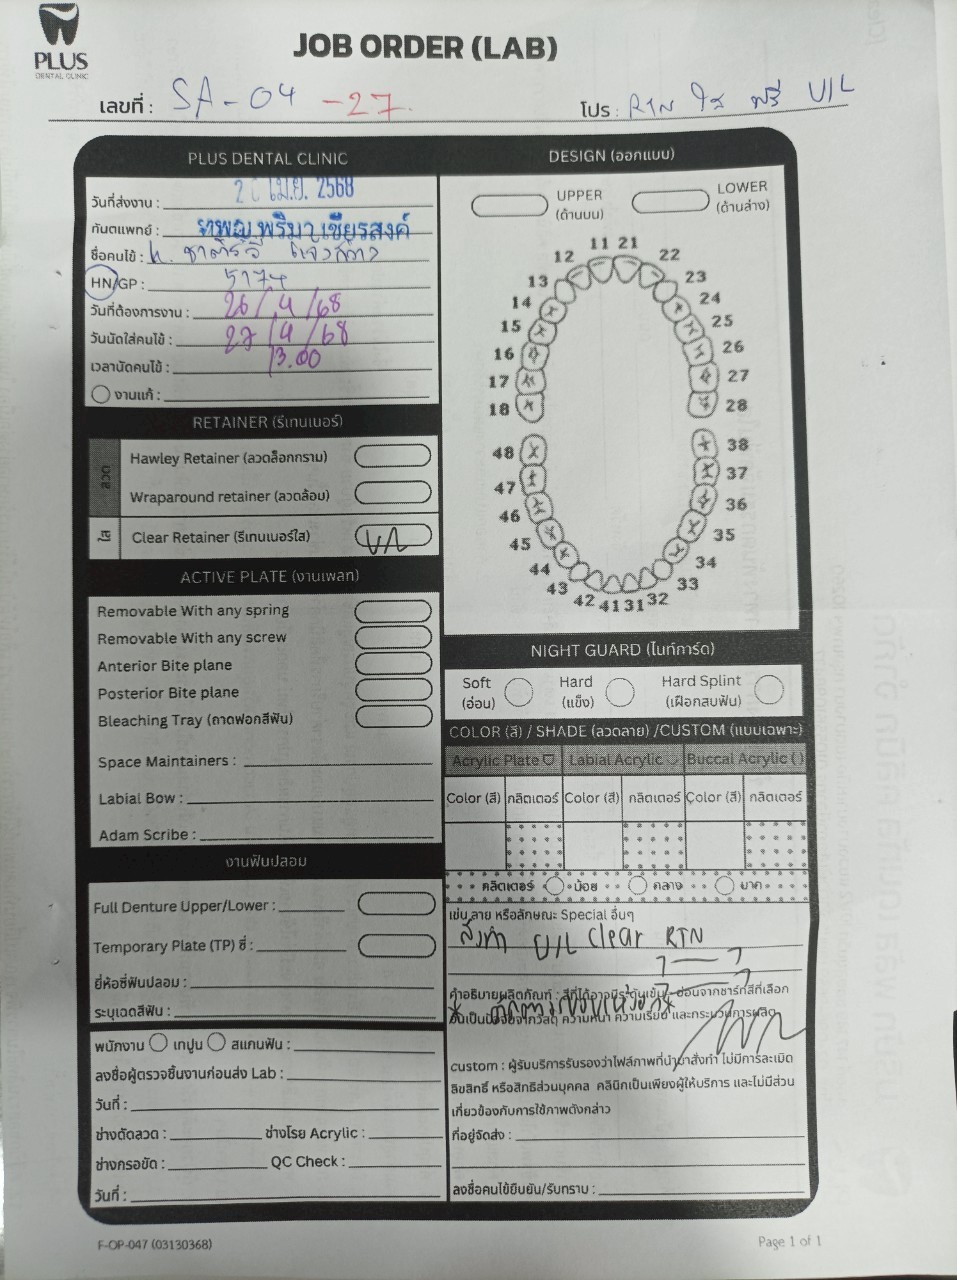 PLUS
DENTAL CLINIC
JOB ORDER (LAB)
เลขที่ : SA - 04 - 27.
โปร : RTN ใส ฟรี U/L
PLUS DENTAL CLINIC
วันที่ส่งงาน : เม.ย. 2568
ทันตแพทย์ :
ชื่อคนไข้ :
HN/GP : 5174
วันที่ต้องการงาน : 26/4/68
วันนัดใส่คนไข้ : 27/4/68
เวลานัดคนไข้ : 13.00
งานแก้ :
RETAINER (รีเทนเนอร์)
ลวด
Hawley Retainer (ลวดล็อกกราม)
Wraparound retainer (ลวดล้อม)
ใส
Clear Retainer (รีเทนเนอร์ใส) U/L
ACTIVE PLATE (งานเพลท)
Removable With any spring
Removable With any screw
Anterior Bite plane
Posterior Bite plane
Bleaching Tray (ถาดฟอกสีฟัน)
Space Maintainers :
Labial Bow :
Adam Scribe :
งานฟันปลอม
Full Denture Upper/Lower :
Temporary Plate (TP) ซี่ :
ยี่ห้อซี่ฟันปลอม :
ระบุเฉดสีฟัน :
พนักงาน เทปูน สแกนฟัน :
ลงชื่อผู้ตรวจชิ้นงานก่อนส่ง Lab :
วันที่ :
ช่างดัดลวด : ช่างโรย Acrylic :
ช่างกรอขัด : QC Check :
วันที่ :
DESIGN (ออกแบบ)
UPPER
(ด้านบน)
LOWER
(ด้านล่าง)
11 21
12 22
13 23
14 24
15 25
16 26
17 27
18 28
48 38
47 37
46 36
45 35
44 34
43 33
42 41 31 32
NIGHT GUARD (ไนท์การ์ด)
Soft
(อ่อน)
Hard
(แข็ง)
Hard Splint
(เฝือกสบฟัน)
COLOR (สี) / SHADE (ลวดลาย) /CUSTOM (แบบเฉพาะ)
Acrylic Plate Labial Acrylic Buccal Acrylic ( )
Color (สี) กลิตเตอร์ Color (สี) กลิตเตอร์ Color (สี) กลิตเตอร์
กลิตเตอร์ น้อย กลาง มาก
เช่น ลาย หรือลักษณะ Special อื่นๆ
สั่งทำ U/L Clear RTN
7 — 7
คำอธิบายผลิตภัณฑ์ : สีที่ได้อาจมีระดับเข้ม - อ่อนจากชาร์ทสีที่เลือก
อันเป็นปัจจัยจากวัสดุ ความหนา ความเรียบ และกระบวนการผลิต
custom : ผู้รับบริการรับรองว่าไฟล์ภาพที่นำมาสั่งทำ ไม่มีการละเมิด
ลิขสิทธิ์ หรือสิทธิส่วนบุคคล คลินิกเป็นเพียงผู้ให้บริการ และไม่มีส่วน
เกี่ยวข้องกับการใช้ภาพดังกล่าว
ที่อยู่จัดส่ง :
ลงชื่อคนไข้ยืนยัน/รับทราบ :
F-OP-047 (03130368)
Page 1 of 1